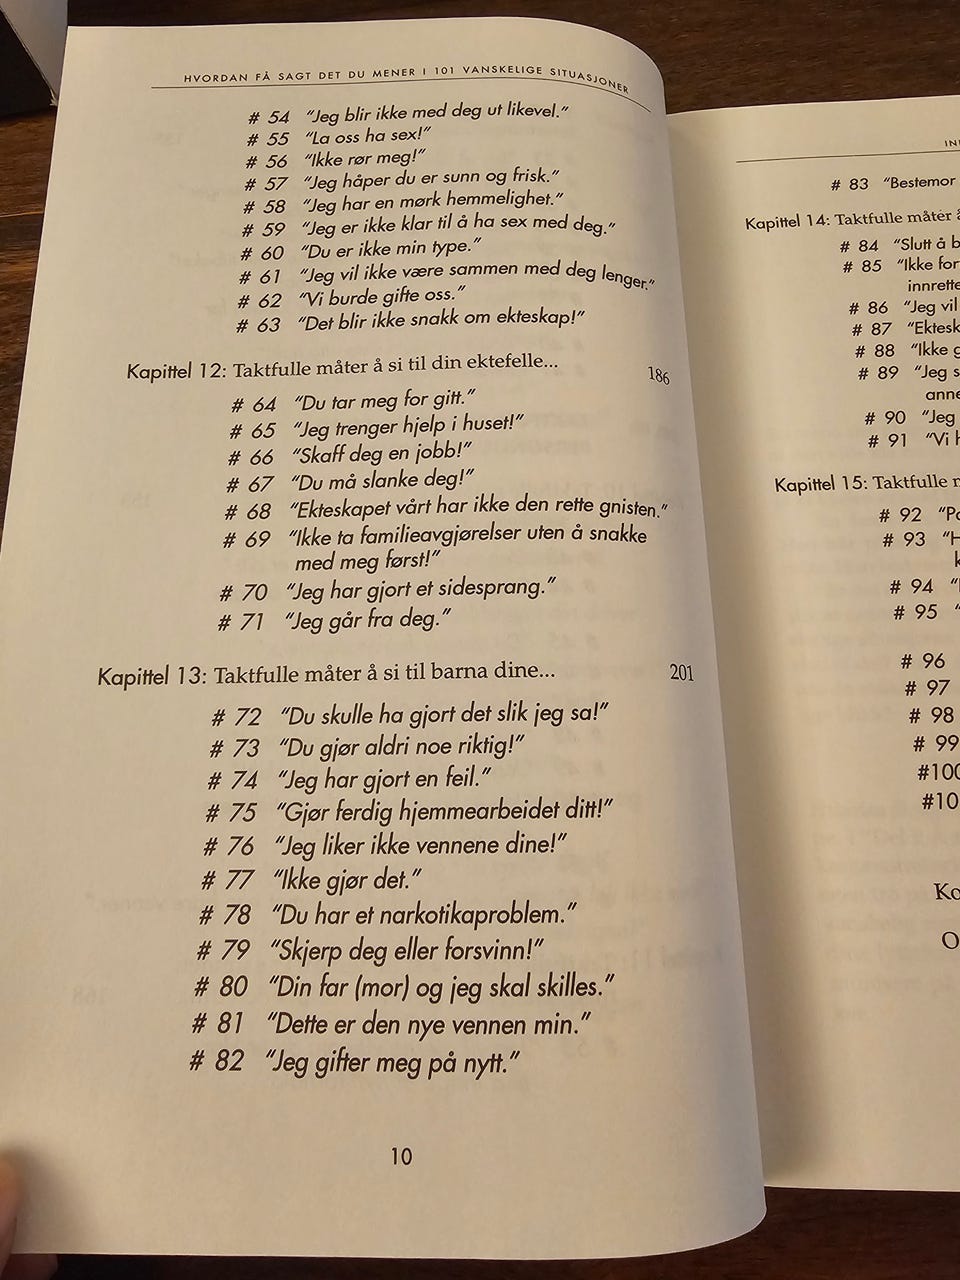 HVORDAN FÅ SAGT DET DU MENER I 101 VANSKELIGE SITUASJONER
# 54 “Jeg blir ikke med deg ut likevel.”
# 55 “La oss ha sex!”
# 56 “Ikke rør meg!”
# 57 “Jeg håper du er sunn og frisk.”
# 58 “Jeg har en mørk hemmelighet.”
# 59 “Jeg er ikke klar til å ha sex med deg.”
# 60 “Du er ikke min type.”
# 61 “Jeg vil ikke være sammen med deg lenger.”
# 62 “Vi burde gifte oss.”
# 63 “Det blir ikke snakk om ekteskap!”
Kapittel 12: Taktfulle måter å si til din ektefelle... 186
# 64 “Du tar meg for gitt.”
# 65 “Jeg trenger hjelp i huset!”
# 66 “Skaff deg en jobb!”
# 67 “Du må slanke deg!”
# 68 “Ekteskapet vårt har ikke den rette gnisten.”
# 69 “Ikke ta familieavgjørelser uten å snakke
med meg først!”
# 70 “Jeg har gjort et sidesprang.”
# 71 “Jeg går fra deg.”
Kapittel 13: Taktfulle måter å si til barna dine... 201
# 72 “Du skulle ha gjort det slik jeg sa!”
# 73 “Du gjør aldri noe riktig!”
# 74 “Jeg har gjort en feil.”
# 75 “Gjør ferdig hjemmearbeidet ditt!”
# 76 “Jeg liker ikke vennene dine!”
# 77 “Ikke gjør det.”
# 78 “Du har et narkotikaproblem.”
# 79 “Skjerp deg eller forsvinn!”
# 80 “Din far (mor) og jeg skal skilles.”
# 81 “Dette er den nye vennen min.”
# 82 “Jeg gifter meg på nytt.”
10
# 83 “Bestemor
Kapittel 14: Taktfulle måter
# 84 “Slutt å
# 85 “Ikke
# 86 “Jeg vil
# 87
# 88 “Ikke
# 89 “Jeg
# 90 “Jeg
# 91 “Vi
Kapittel 15: Taktfulle
# 92
# 93
# 94
# 95
# 96
# 97
# 98
# 99